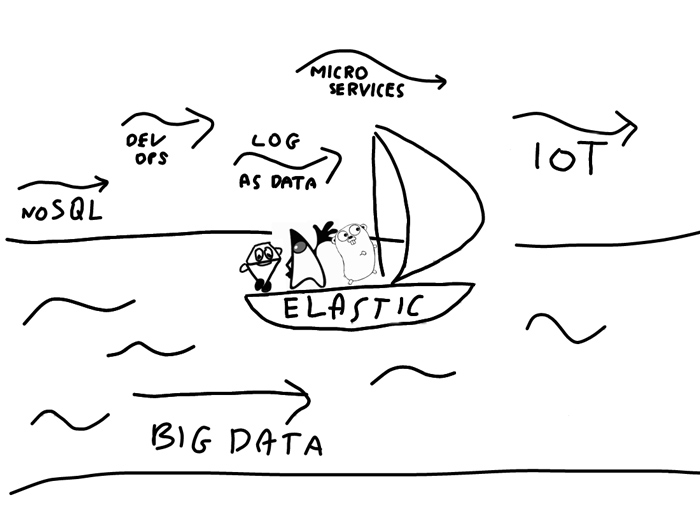 MICRO
SERVICES
DEV
OPS
LOG
AS DATA
IOT
NOSQL
ELASTIC
BIG DATA